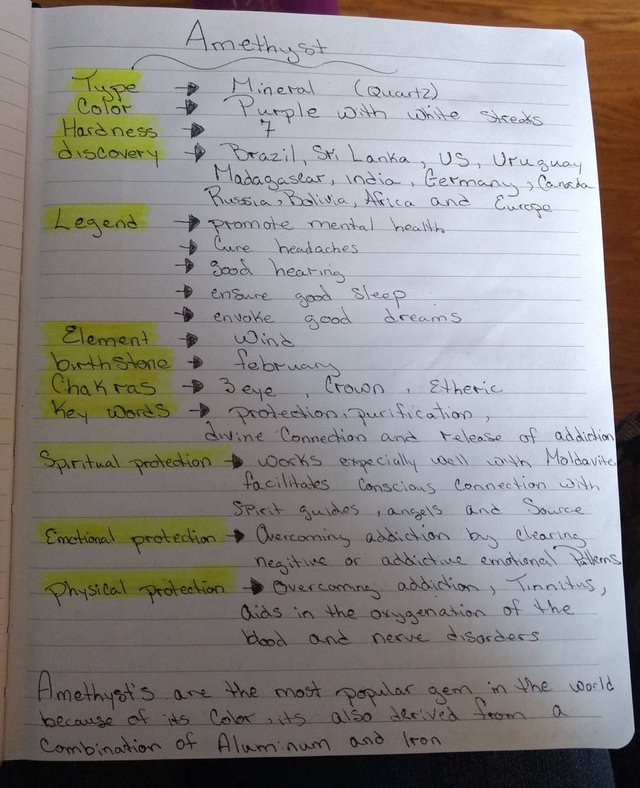 Amethyst
Type → Mineral (Quartz)
Color → Purple with white streaks
Hardness → 7
discovery → Brazil, Sri Lanka, US, Uruguay
Madagascar, india, Germany, Canada
Russia, Bolivia, Africa and Europe
Legend → promote mental health
→ Cure headaches
→ good hearing
→ ensure good sleep
→ envoke good dreams
Element → Wind
birthstone → february
Chakras → 3 eye, Crown, Etheric
Key words → protection, purification,
divine Connection and release of addiction
Spiritual protection → works especially well with Moldavite
facilitates conscious connection with
spirit guides, angels and Source
Emotional protection → Overcoming addiction by clearing
negitive or addictive emotional Patterns
Physical protection → Overcoming addiction, Tinnitus,
aids in the oxygenation of the
blood and nerve disorders
Amethyst's are the most popular gem in the world
because of its Color, its also derived from a
Combination of Aluminum and Iron